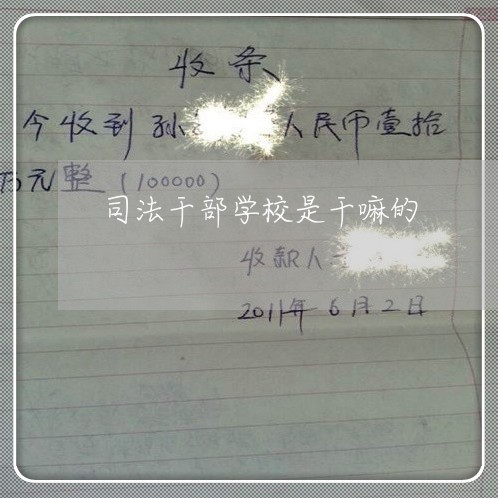 收条
今收到孙 人民币壹拾
万元整（100000）
司法干部学校是干嘛的
收款人
2011年6月2日